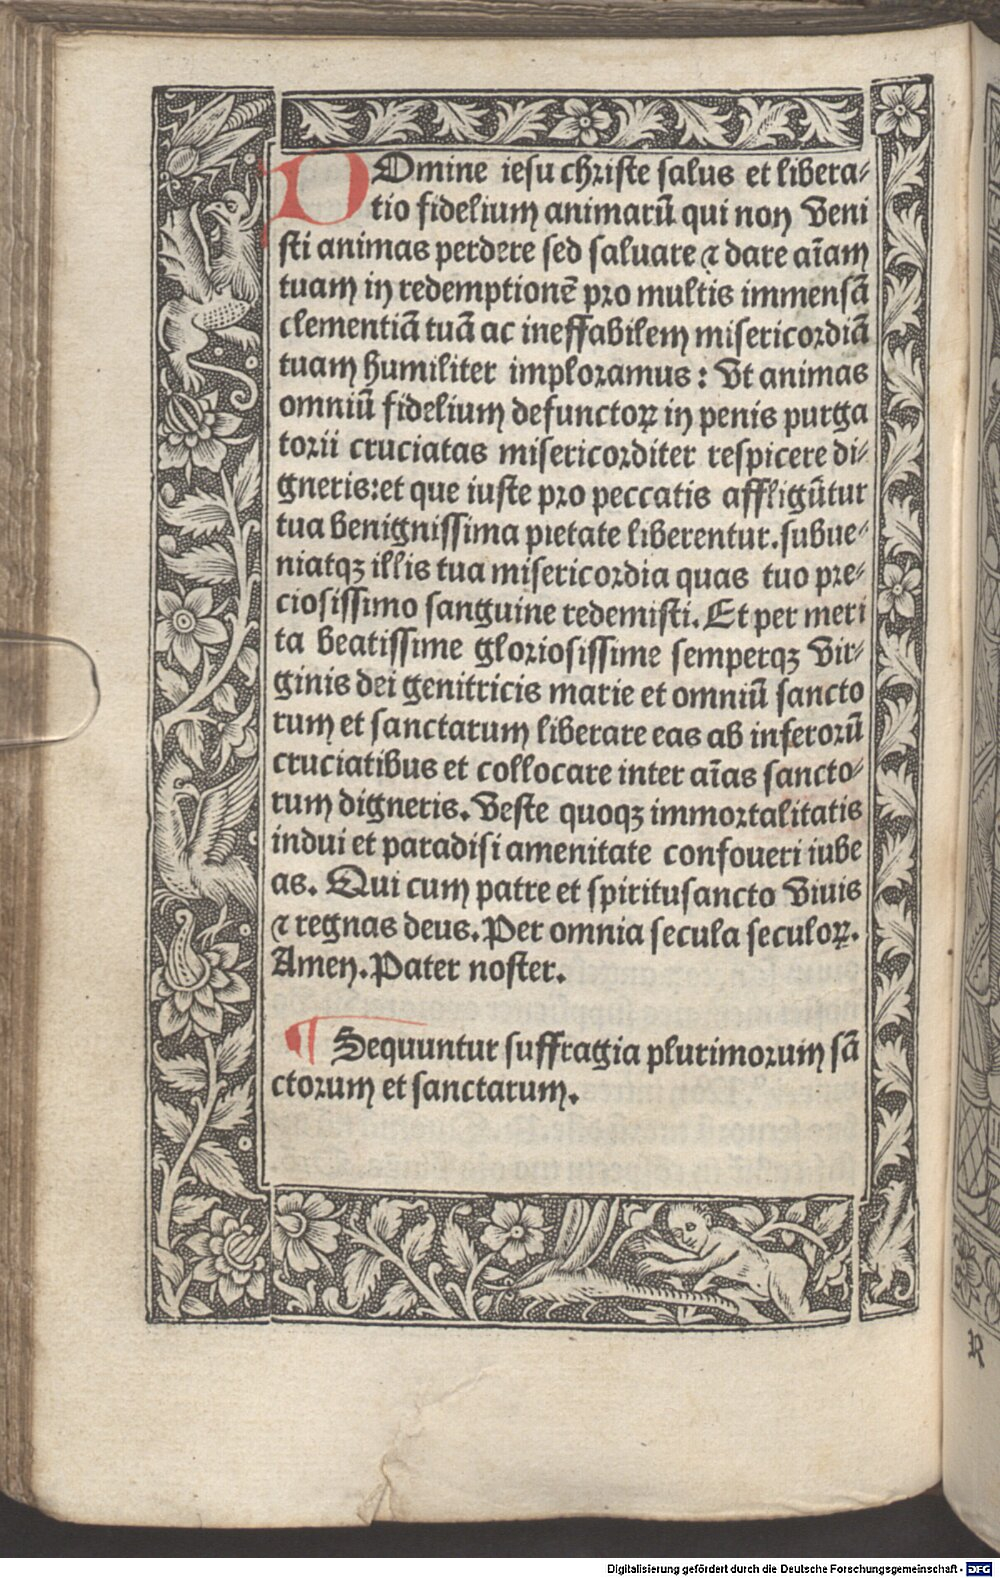 DOmine iesu christe salus et libera⸗
tio fidelium animarū qui non veni
sti animas perdere sed saluare ⁊ dare aīam
tuam in redemptionē pro multis immensā
clementiā tuā ac ineffabilem misericordiā
tuam humiliter imploramus: vt animas
omniū fidelium defunctoꝝ in penis purga
torii cruciatas misericorditer respicere di⸗
gneris:et que iuste pro peccatis affligūtur
tua benignissima pietate liberentur.subue⸗
niatqꝫ illis tua misericordia quas tuo pre⸗
ciosissimo sanguine redemisti. Et per meri
ta beatissime gloriosissime semperqꝫ vir⸗
ginis dei genitricis marie et omniū sancto
rum et sanctarum liberare eas ab inferorū
cruciatibus et collocare inter aīas sancto⸗
rum digneris. veste quoqꝫ immortalitatis
indui et paradisi amenitate confoueri iube
as. Qui cum patre et spiritusancto viuis
⁊ regnas deus. Per omnia secula seculoꝝ.
Amen. Pater noster.
¶ Sequuntur suffragia plurimorum sā
ctorum et sanctarum.
R
Digitalisierung gefördert durch die Deutsche Forschungsgemeinschaft - DFG